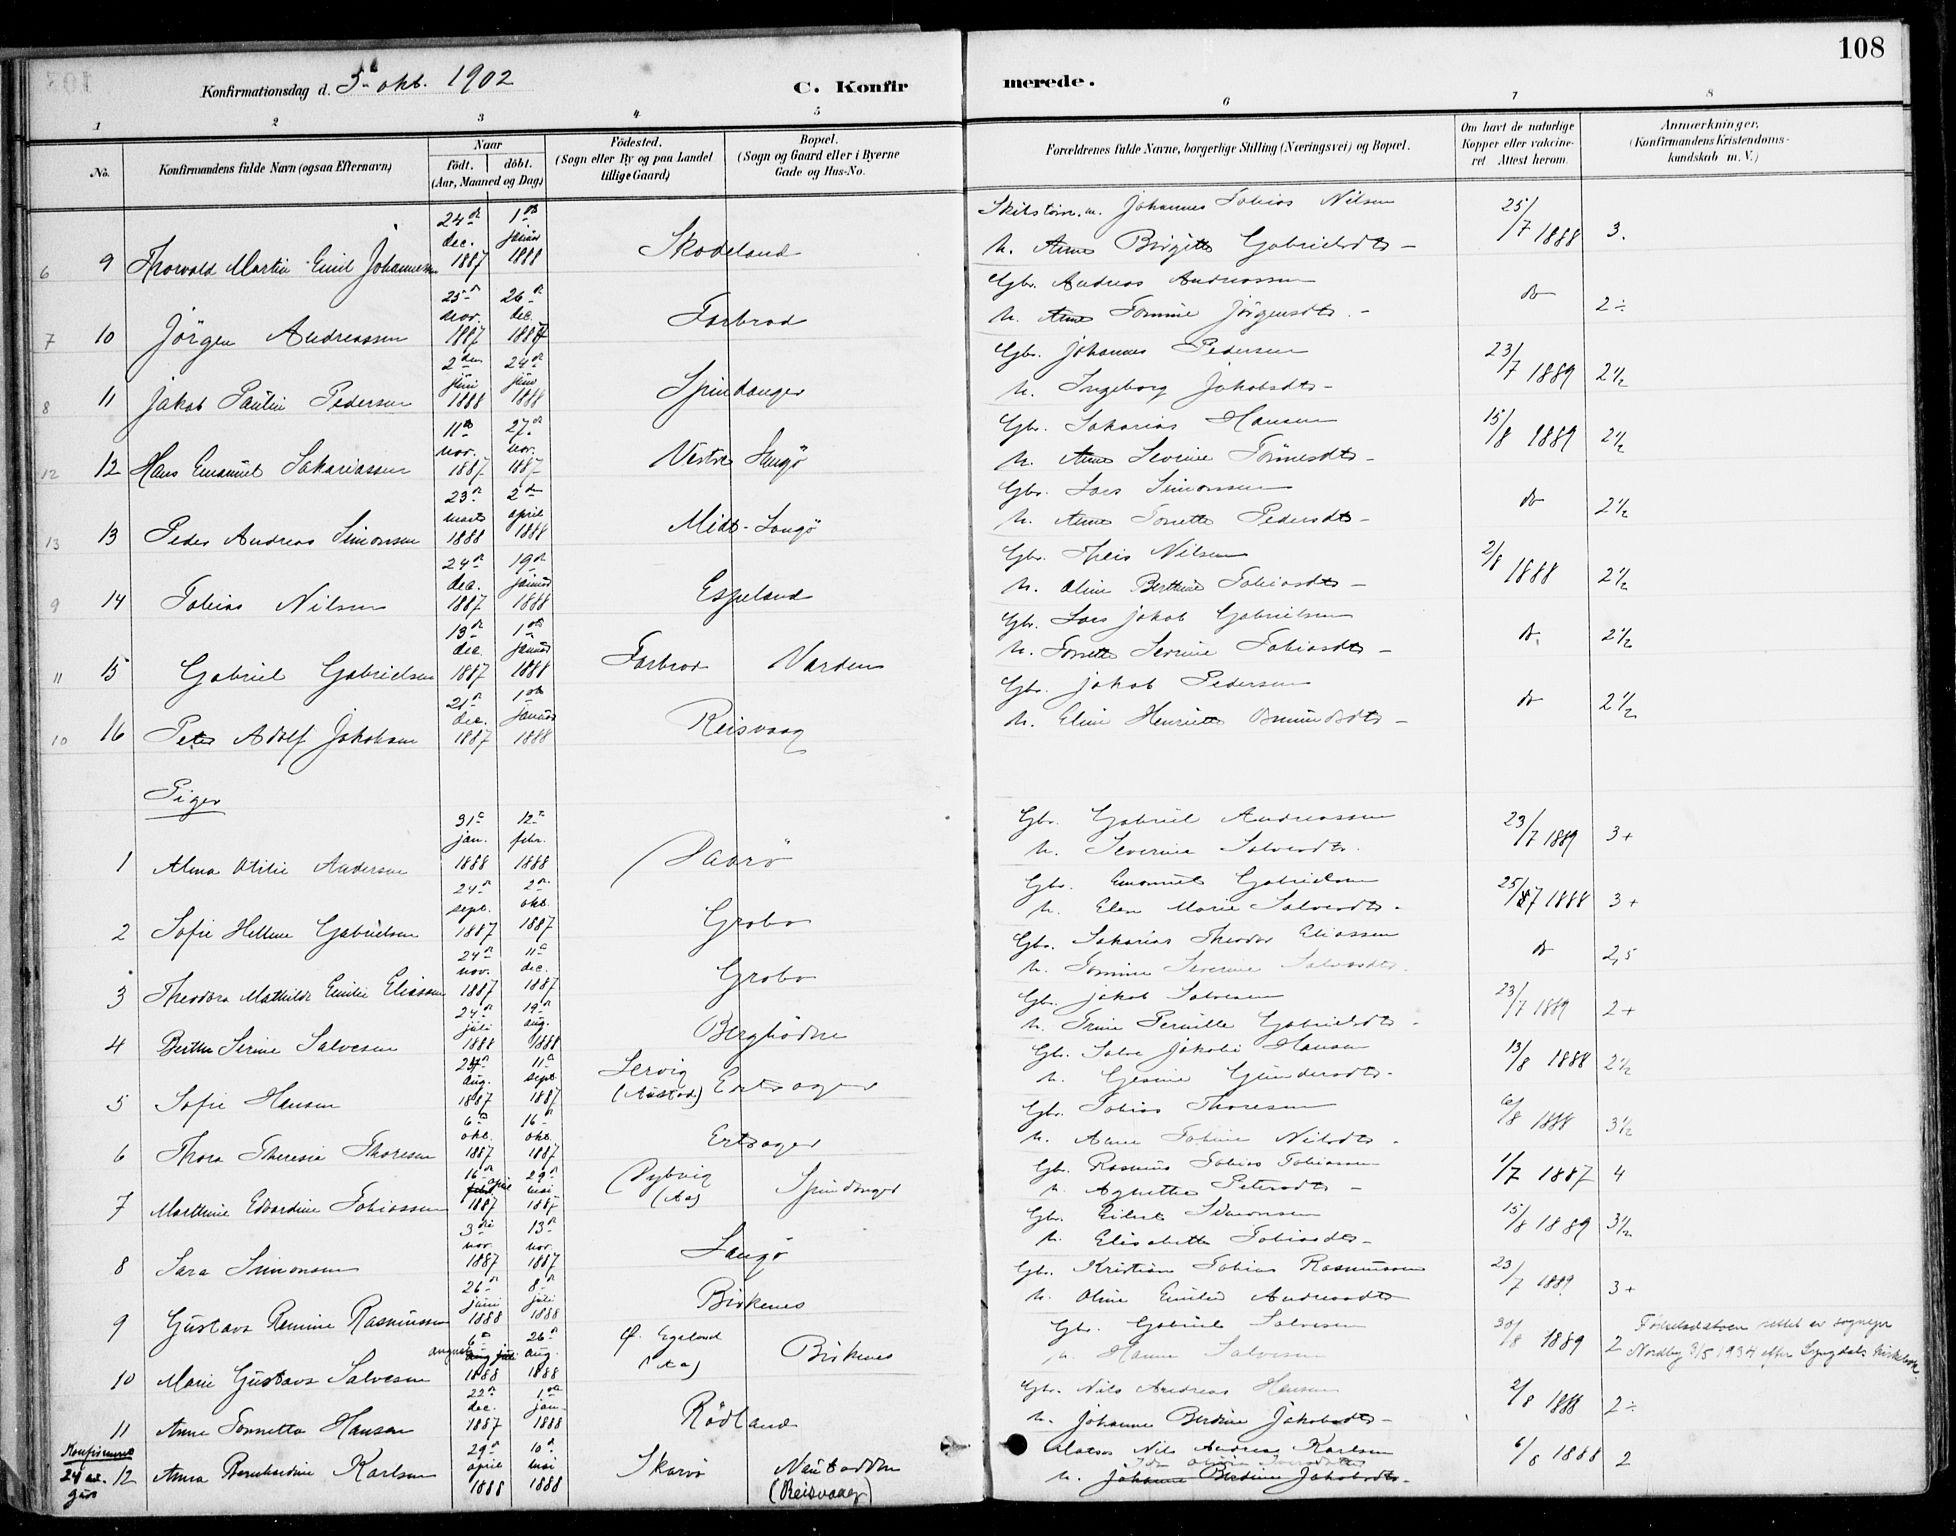 108
Konfirmationsdag d. 5te okt. 1902
C. Konfirmerede.
1 2 3 4 5 6 7 8
No.
Konfirmandens fulde Navn (ogsaa Efternavn)
Naar
födt. döbt.
(Aar, Maaned og Dag)
Födested.
(Sogn eller By og paa Landet
tillige Gaard)
Bopæl.
(Sogn og Gaard eller i Byerne
Gade og Hus-No.
Forældrenes fulde Navne, borgerlige Stilling (Næringsvei) og Bopæl.
Om havt de naturlige
Kopper eller vaccine-
ret Attest herom.
Anmærkninger,
(Konfirmandens Kristendoms-
kundskab m. V.)
6 9 Thorvald Martin Emil Johannesen 24de dec. 1887 1ste januar 1888 Skodeland
Johannes Tobias Nilsen
h. Anne Birgitte Gabrielsdtr 25/7 1888 3.
7 10 Jörgen Andreassen 25de nov. 1887 26de dec. 1887 Farbrod
Gbr. Andreas Andreassen
h. Anne Tomine Jörgensdtr. do 2÷
8 11 Jakob Paulin Pedersen 2den juni 1888 24de juni 1888 Spindanger
Gbr. Johannes Pedersen
h. Ingeborg Jakobsdtr 23/7 1889 2½
12 12 Hans Emanuel Sakariassen 11te nov. 1887 27de nov. 1887 Vestre Langö
Gbr. Sakarias Hansen
h. Anne Severine Tönnesdtr 15/8 1889 2½
13 13 Peder Andreas Simonsen 23de marts 1888 2den april 1888 Midt-Langö
Gbr. Lars Simonsen
h. Anne Tonette Pedersdtr do 2½
9 14 Tobias Nilsen 24de dec. 1887 19de januar 1888 Espeland
Gbr. Theis Nilsen
h. Oline Berthine Tobiasdtr 2/8 1888 2½
11 15 Gabriel Gabrielsen 13de dec. 1887 1ste januar 1888 Farbrod Varden
Gbr. Lars Jakob Gabrielsen
h. Tonette Serine Tobiasdtr do 2½
10 16 Peter Adolf Jakobsen 21de dec. 1887 1ste januar 1888 Reisvaag
Gbr. Jakob Pedersen
h. Eline Henriette Omundsdtr do 2½
Piger
1 Alma Otilie Andersen 31te jan. 1888 12te febr. 1888
Gbr. Gabriel Andreassen
h. Severine Salvesdtr. 23/7 1889 3+
2 Sofie Hellene Gabrielsen 24de sept. 1887 2den okt. 1887 Grobo
Gbr. Emanuel Gabrielsen
h. Elen Marie Salvesdtr 25/7 1888 3+
3 Theodora Mathilde Emilie Eliassen 24de nov. 1887 11te dec. 1887 Grobo
Gbr. Sakarias Theodor Eliassen
h. Tomine Severine Salvesdtr. do 2,5
4 Berthe Serine Salvesen 24de juli 1888 19de aug. 1888 Berghodne
Gbr. Jakob Salvesen
h. Trine Pernille Gabrielsdtr 23/7 1889 2+
5 Sofie Hansen aug. 1887 11te sept. 1887 Lervig (Austad) Ertsager
Gbr. Salve Jakobi Hansen
h. Gesine Gundersdtr. 13/8 1888 2½
6 Thora Theresie Thoresen 6te okt. 1887 16de okt. 1887 Ertsager
Gbr. Tobias Thoresen
h. Anne Tobine Nilsdtr 6/8 1888 3½
7 Marthine Edvardine Tobiassen 16de april 1887 29de mai 1887 (Aa) Spindanger
Gbr. Rasmus Tobias Tobiassen
h. Agnethe Petersdtr 1/7 1887 4
8 Sara Simonsen 3die nov. 1887 13de nov. 1887 Langö
Gbr. Eilert Simonsen
h. Elisabette Tobiasdtr 15/8 1889 3½
9 Gustava Romine Rasmussen 26de juni 1888 8de juli 1888 Birkenes
Gbr. Kristian Tobias Rasmussen
h. Oline Emilie Andreasdtr 23/7 1889 3+
10 Marie Gustava Salvesen 6te august 1888 26de aug. 1888 Ø. Egeland (Aa) Birkenes
Gbr. Gabriel Salvesen
h. Hanne Salvesen 30/8 1889 2
Fødselsdatoen rettet av sogneprest
Nordby 3/5 1934 efter Lyngdals kirkebok
11 Anne Tonnetta Hansen 22de dec. 1887 1ste jan. 1888 Rödland
Gbr. Nils Andreas Hansen
h. Johanne Berdine Jakobsdtr 2/8 1888 2÷
Konfirmeret
12 Anna Bernhardine Karlsen 29de april 1888 10de mai 1888 Skarvö (Reisvaag)
Nils Andreas Karlsen
h. Johanne Berdine Jakobsdtr 6/8 1888 2